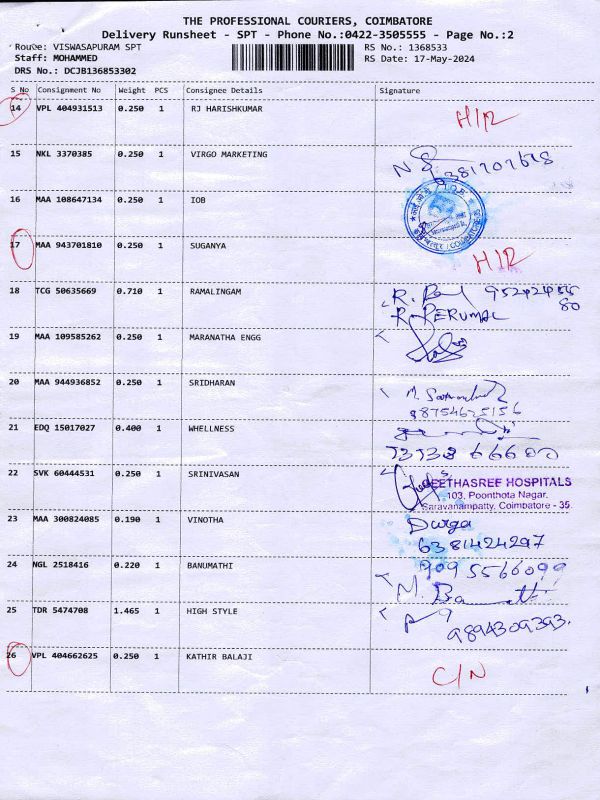 THE PROFESSIONAL COURIERS, COIMBATORE
Delivery Runsheet - SPT - Phone No.:0422-3505555 - Page No.:2
Route: VISWASAPURAM SPT
RS No.: 1368533
Staff: MOHAMMED
RS Date: 17-May-2024
DRS No.: DCJB136853302
S No Consignment No Weight PCS Consignee Details Signature
14 VPL 404931513 0.250 1 RJ HARISHKUMAR H/R
15 NKL 3370385 0.250 1 VIRGO MARKETING
16 MAA 108647134 0.250 1 IOB
17 MAA 943701810 0.250 1 SUGANYA H/R
18 TCG 50635669 0.710 1 RAMALINGAM
R. PERUMAL 80
19 MAA 109585262 0.250 1 MARANATHA ENGG
20 MAA 944936852 0.250 1 SRIDHARAN
8754625156
21 EDQ 15017027 0.400 1 WHELLNESS
22 SVK 60444531 0.250 1 SRINIVASAN
GEETHASREE HOSPITALS
103, Poonthota Nagar,
Saravanampatty, Coimbatore - 35.
23 MAA 300824085 0.190 1 VINOTHA Durga
6381424297
24 NGL 2518416 0.220 1 BANUMATHI 9095566099
25 TDR 5474708 1.465 1 HIGH STYLE
9894309393.
26 VPL 404662625 0.250 1 KATHIR BALAJI C/N